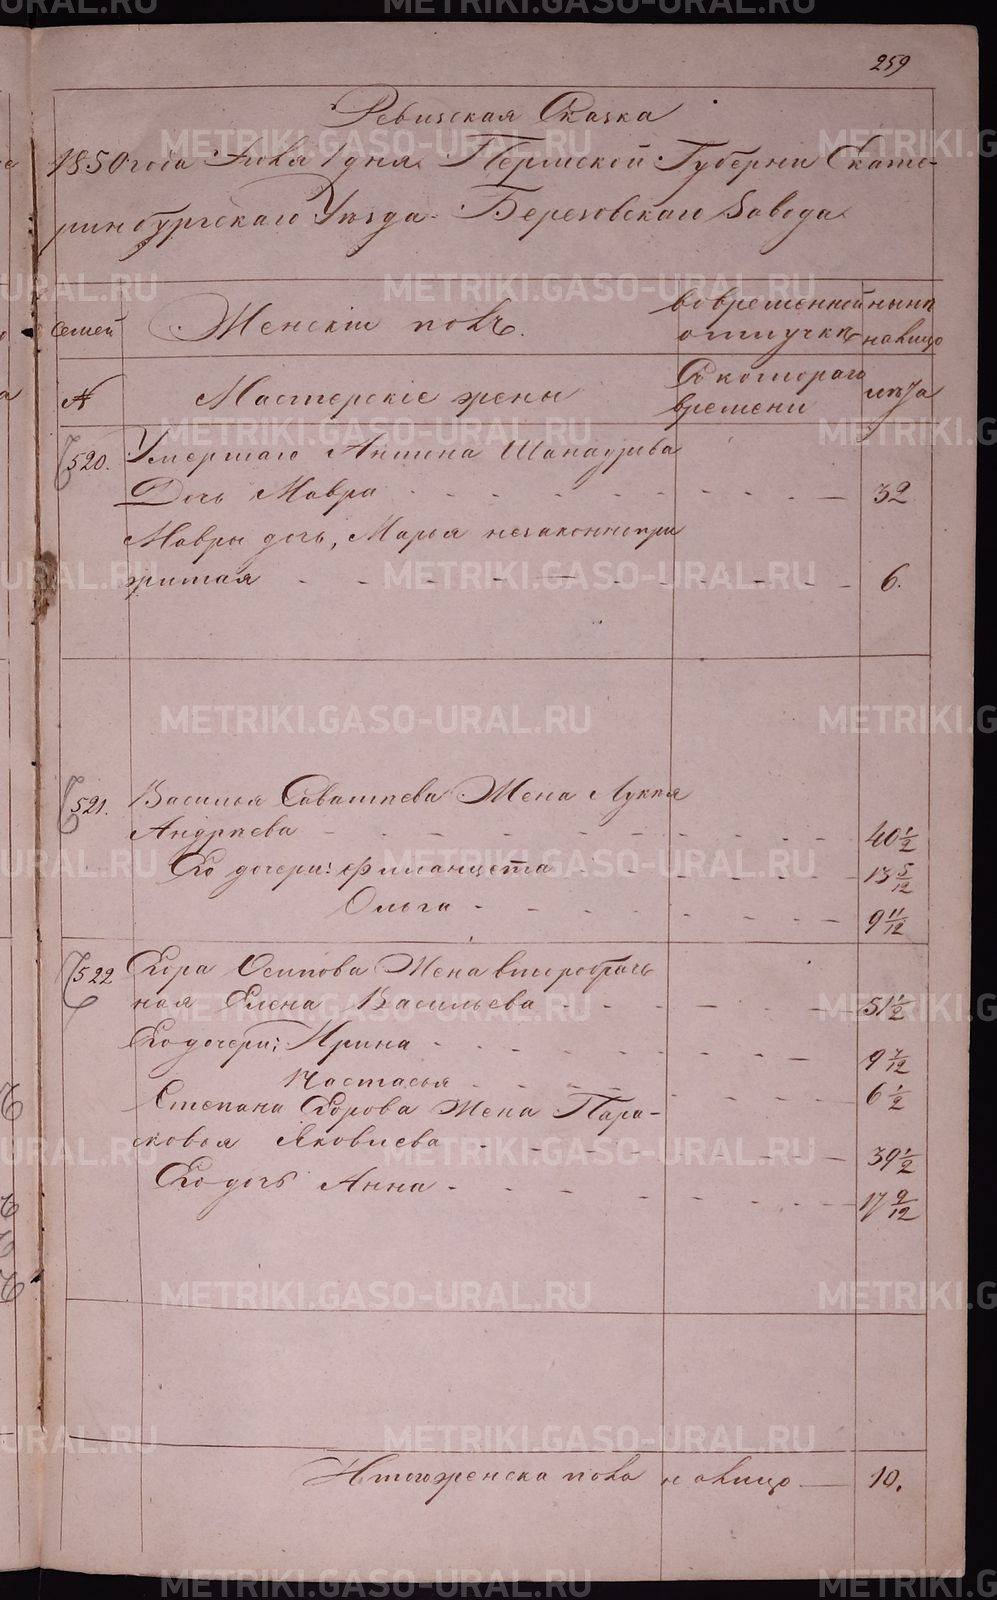 259
Ревизская Сказка
1850 года Июля 1 дня. Пермской Губернии Екате-
ринбургскаго Уѣзда Березовскаго Завода
Семей
Женскій полъ.
во временной
отлучкѣ
нынѣ
на лицо
№
Мастерскіе жены
Съ котораго
времени
лѣта
520.
Умершаго Антипа
Дочь Мавра 32
Мавры дочь, Марья незаконнопри
житая 6.
521.
Василья Савватѣева Жена Лукѣя
Андрѣева 40 1/2
Его дочери: Филанцета 13 5/12
Ольга 9 11/12
522
Егора Осипова Жена второбрач
ная Елена Васильева 51 1/2
Его дочери: Ирина 9 7/12
Настасья 6 1/2
Степана Егорова Жена Пара-
сковья Яковлева 39 1/2
Его дочь Анна 17 9/12
Итого женска пола на лицо 10.
METRIKI.GASO-URAL.RU